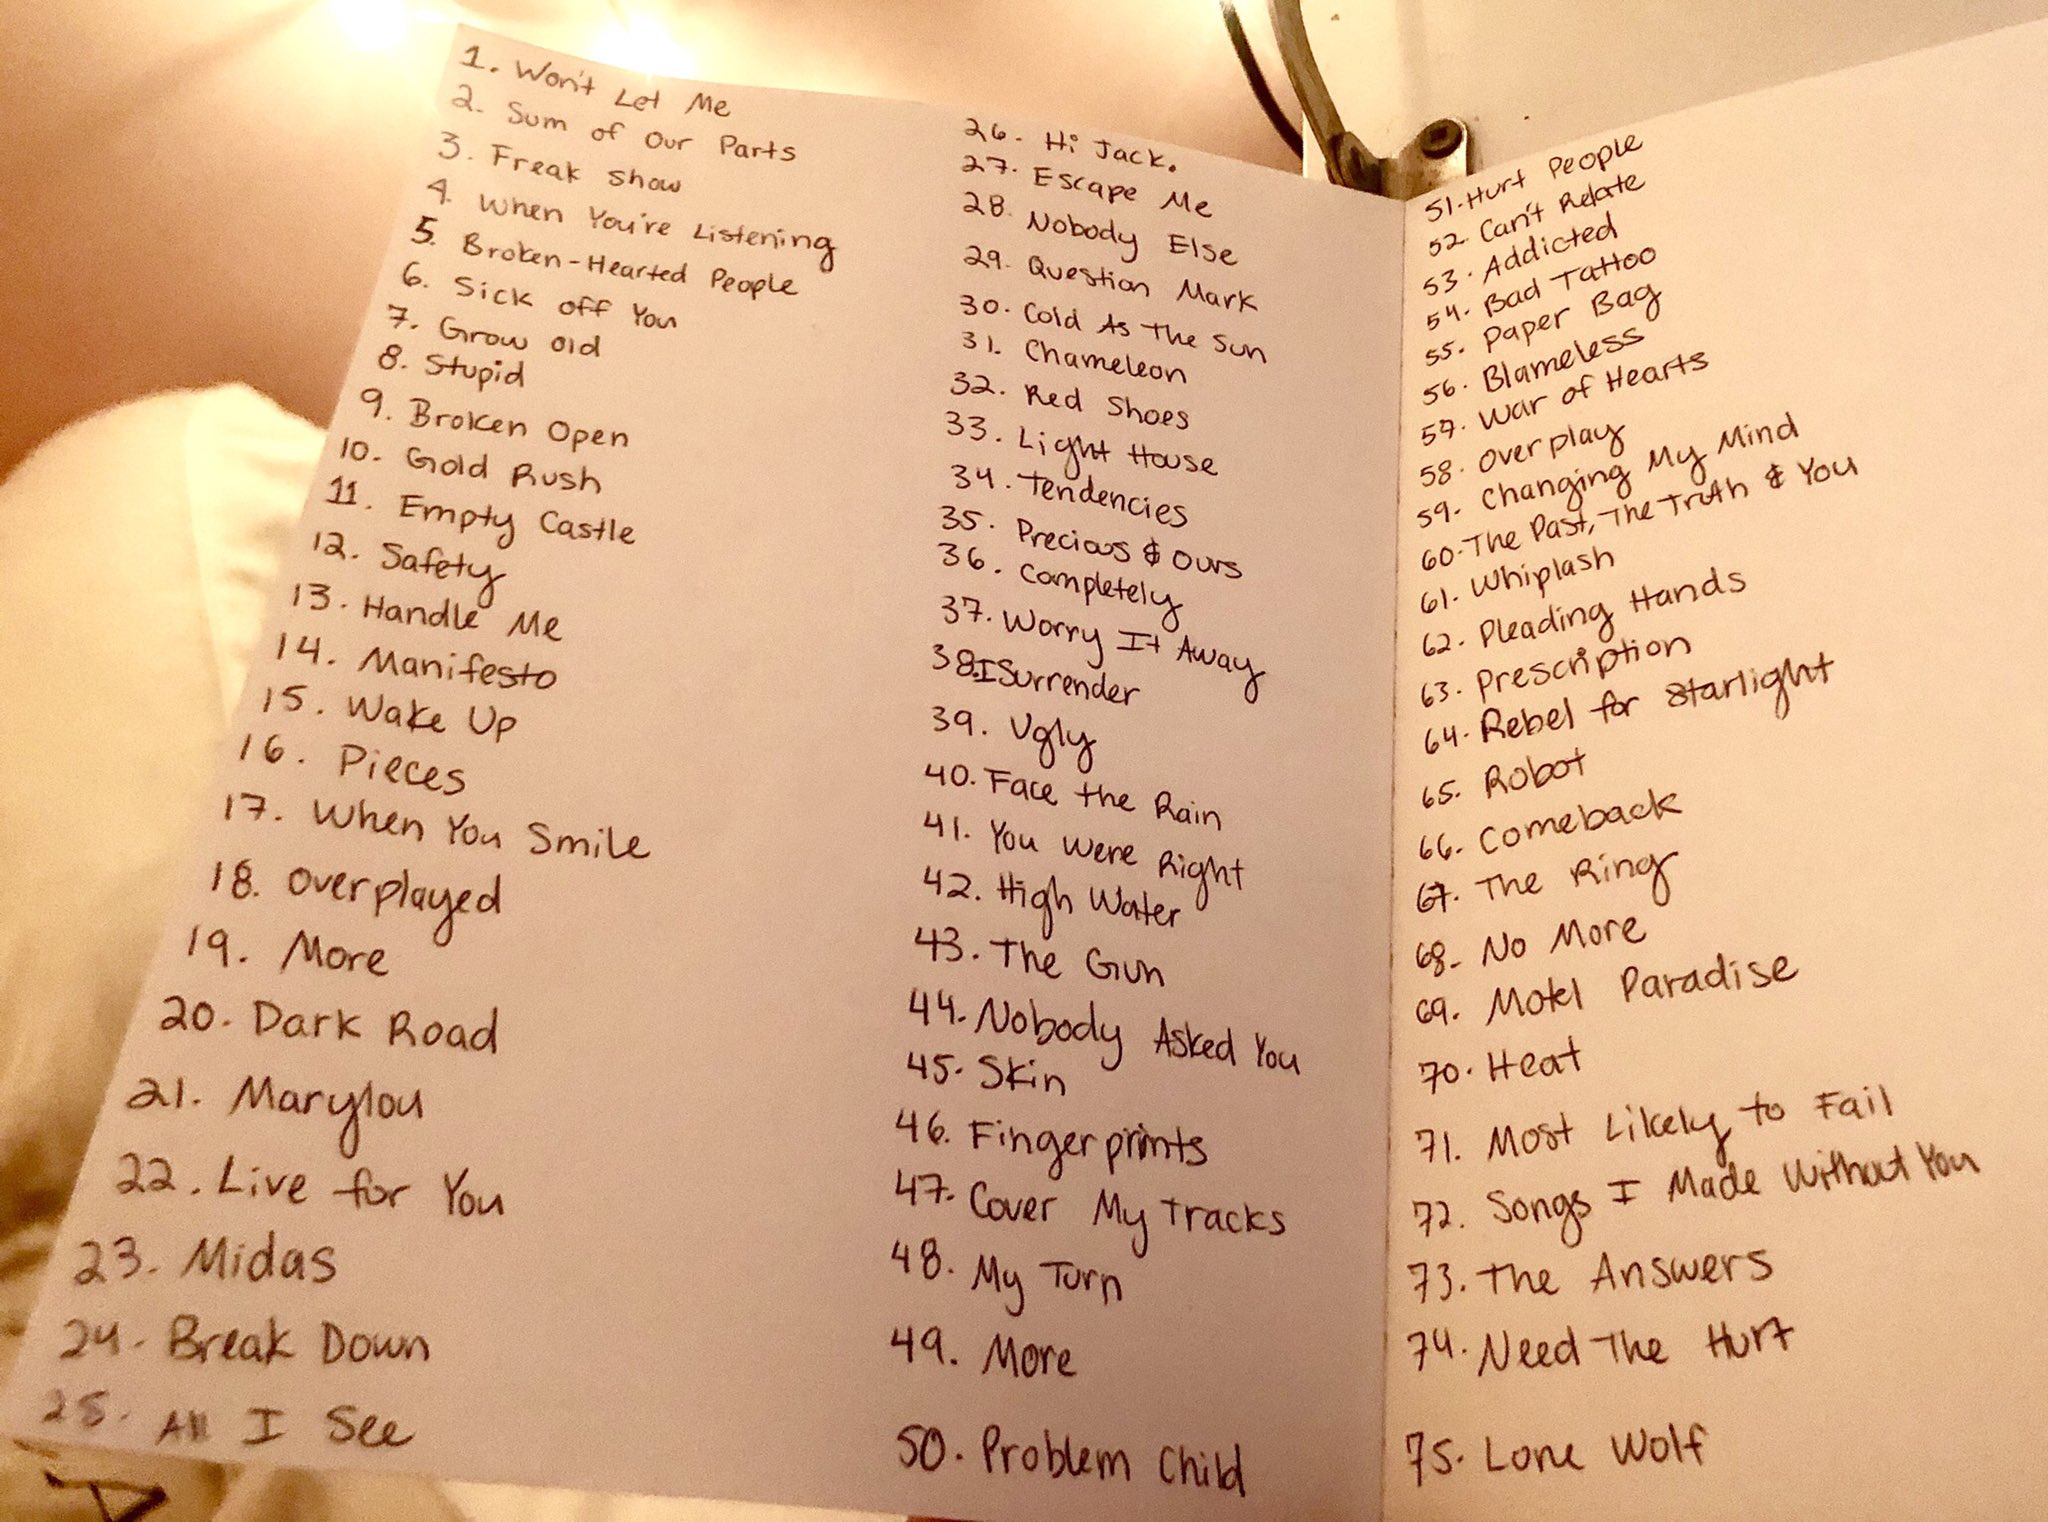 1. Won't Let Me
2. Sum of Our Parts
3. Freak Show
4. When You're Listening
5. Broken-Hearted People
6. Sick off You
7. Grow Old
8. Stupid
9. Broken Open
10. Gold Rush
11. Empty Castle
12. Safety
13. Handle Me
14. Manifesto
15. Wake Up
16. Pieces
17. When You Smile
18. Overplayed
19. More
20. Dark Road
21. Marylou
22. Live for You
23. Midas
24. Break Down
25. All I See
26. Hi Jack.
27. Escape Me
28. Nobody Else
29. Question Mark
30. Cold As The Sun
31. Chameleon
32. Red Shoes
33. Light House
34. Tendencies
35. Precious & Ours
36. Completely
37. Worry It Away
38. I Surrender
39. Ugly
40. Face the Rain
41. You Were Right
42. High Water
43. The Gun
44. Nobody Asked You
45. Skin
46. Fingerprints
47. Cover My Tracks
48. My Turn
49. More
50. Problem Child
51. Hurt People
52. Can't Relate
53. Addicted
54. Bad Tattoo
55. Paper Bag
56. Blameless
57. War of Hearts
58. Overplay
59. Changing My Mind
60. The Past, The Truth & You
61. Whiplash
62. Pleading Hands
63. Prescription
64. Rebel for Starlight
65. Robot
66. Comeback
67. The Ring
68. No More
69. Motel Paradise
70. Heat
71. Most Likely to Fail
72. Songs I Made Without You
73. The Answers
74. Need The Hurt
75. Lone Wolf